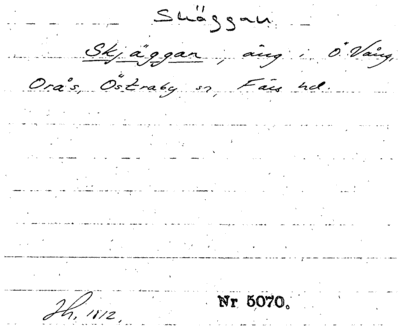 Skäggan
Skjäggan, äng i Ö Vång,
Orås, Östraby sn, Färs hd.
Jh. 1812. Nr 5070.